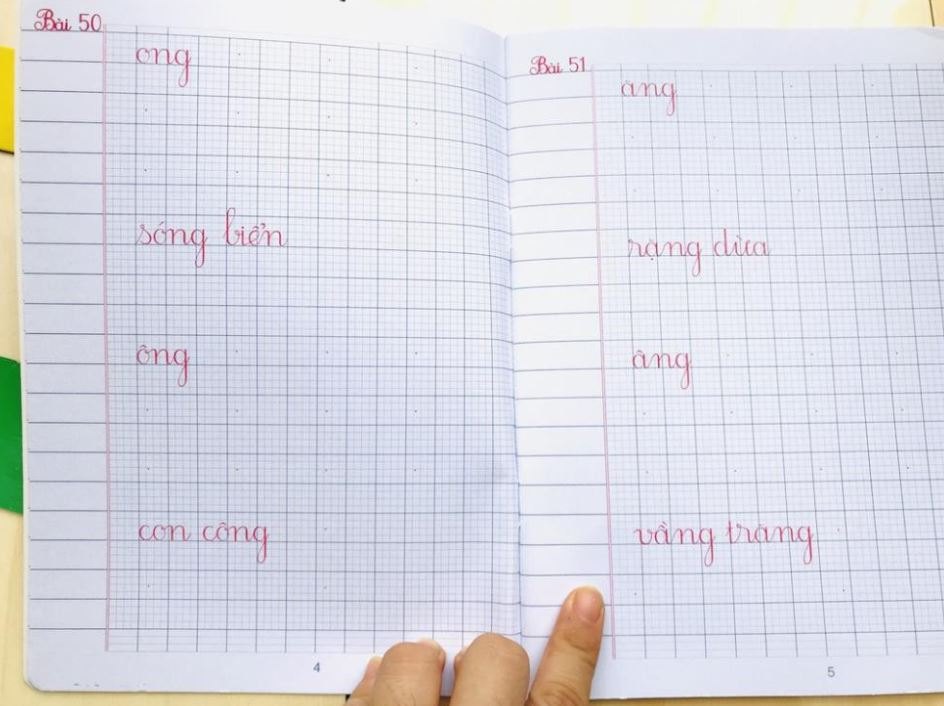 Bài 50
ong
sóng biển
ông
con công
4
Bài 51
ăng
rặng dừa
âng
vầng trăng
5